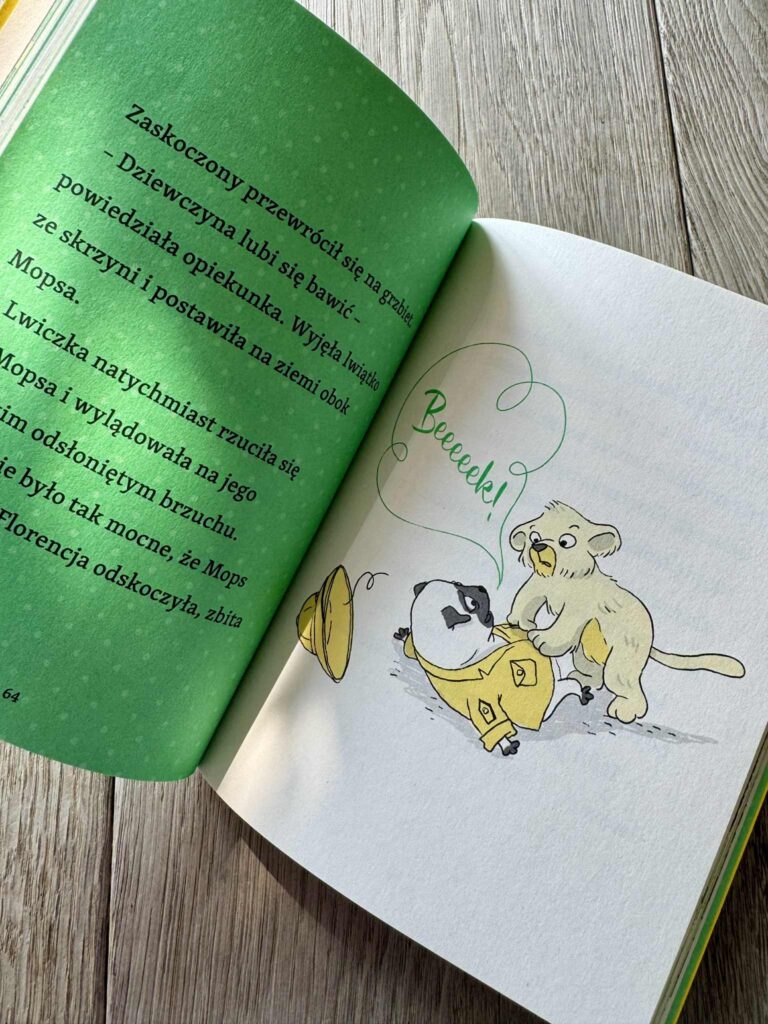 Zaskoczony przewrócił się na grzbiet.
– Dziewczyna lubi się bawić –
powiedziała opiekunka. Wyjęła lwiątko
ze skrzyni i postawiła na ziemi obok
Mopsa.
Lwiczka natychmiast rzuciła się
Mopsa i wylądowała na jego
odsłoniętym brzuchu.
było tak mocne, że Mops
Florencja odskoczyła, zbita
64
Beeeeek!